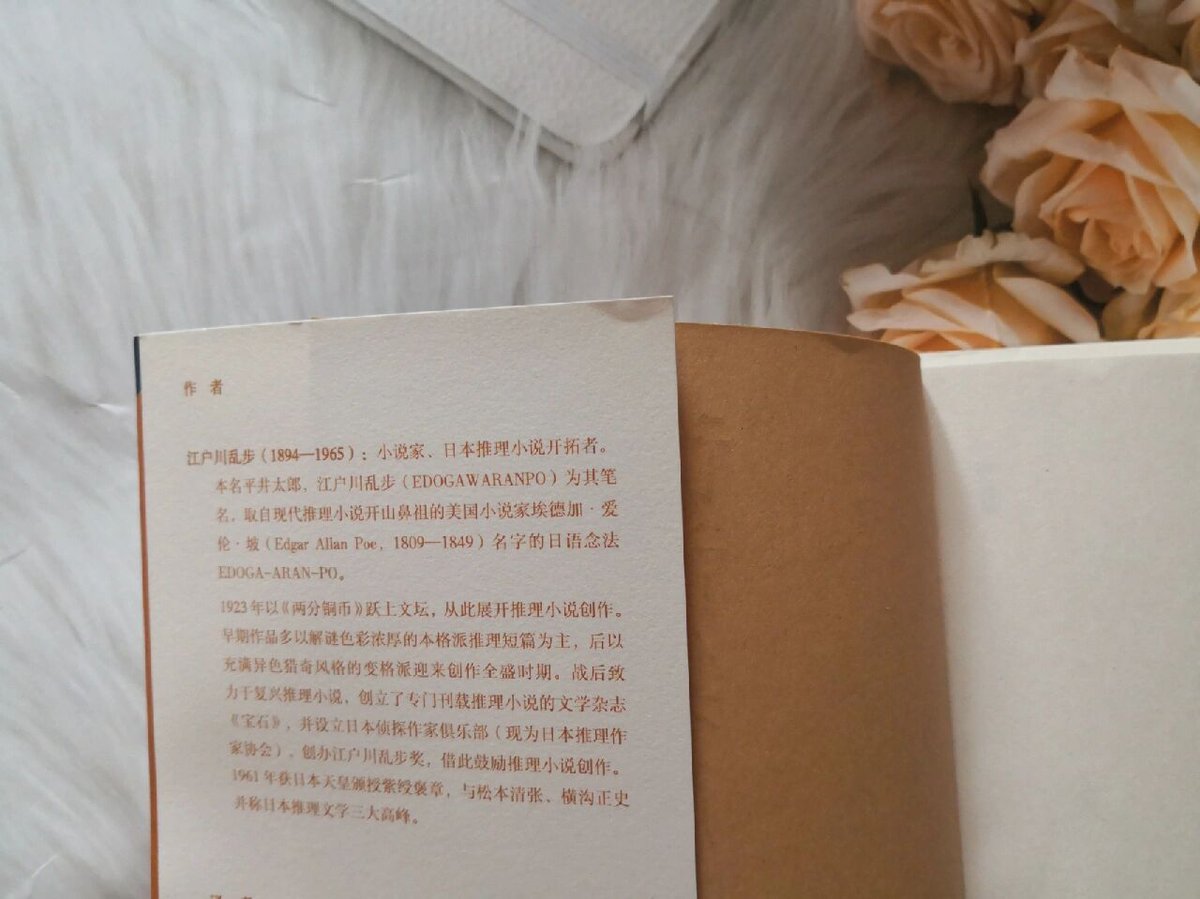 作 者
江户川乱步（1894—1965）：小说家、日本推理小说开拓者。
本名平井太郎，江户川乱步（EDOGAWARANPO）为其笔
名，取自现代推理小说开山鼻祖的美国小说家埃德加·爱
伦·坡（Edgar Allan Poe，1809—1849）名字的日语念法
EDOGA-ARAN-PO。
1923年以《两分铜币》跃上文坛，从此展开推理小说创作。
早期作品多以解谜色彩浓厚的本格派推理短篇为主，后以
充满异色猎奇风格的变格派迎来创作全盛时期。战后致
力于复兴推理小说，创立了专门刊载推理小说的文学杂志
《宝石》，并设立日本侦探作家俱乐部（现为日本推理作
家协会），创办江户川乱步奖，借此鼓励推理小说创作。
1961年获日本天皇颁授紫绶褒章，与松本清张、横沟正史
并称日本推理文学三大高峰。